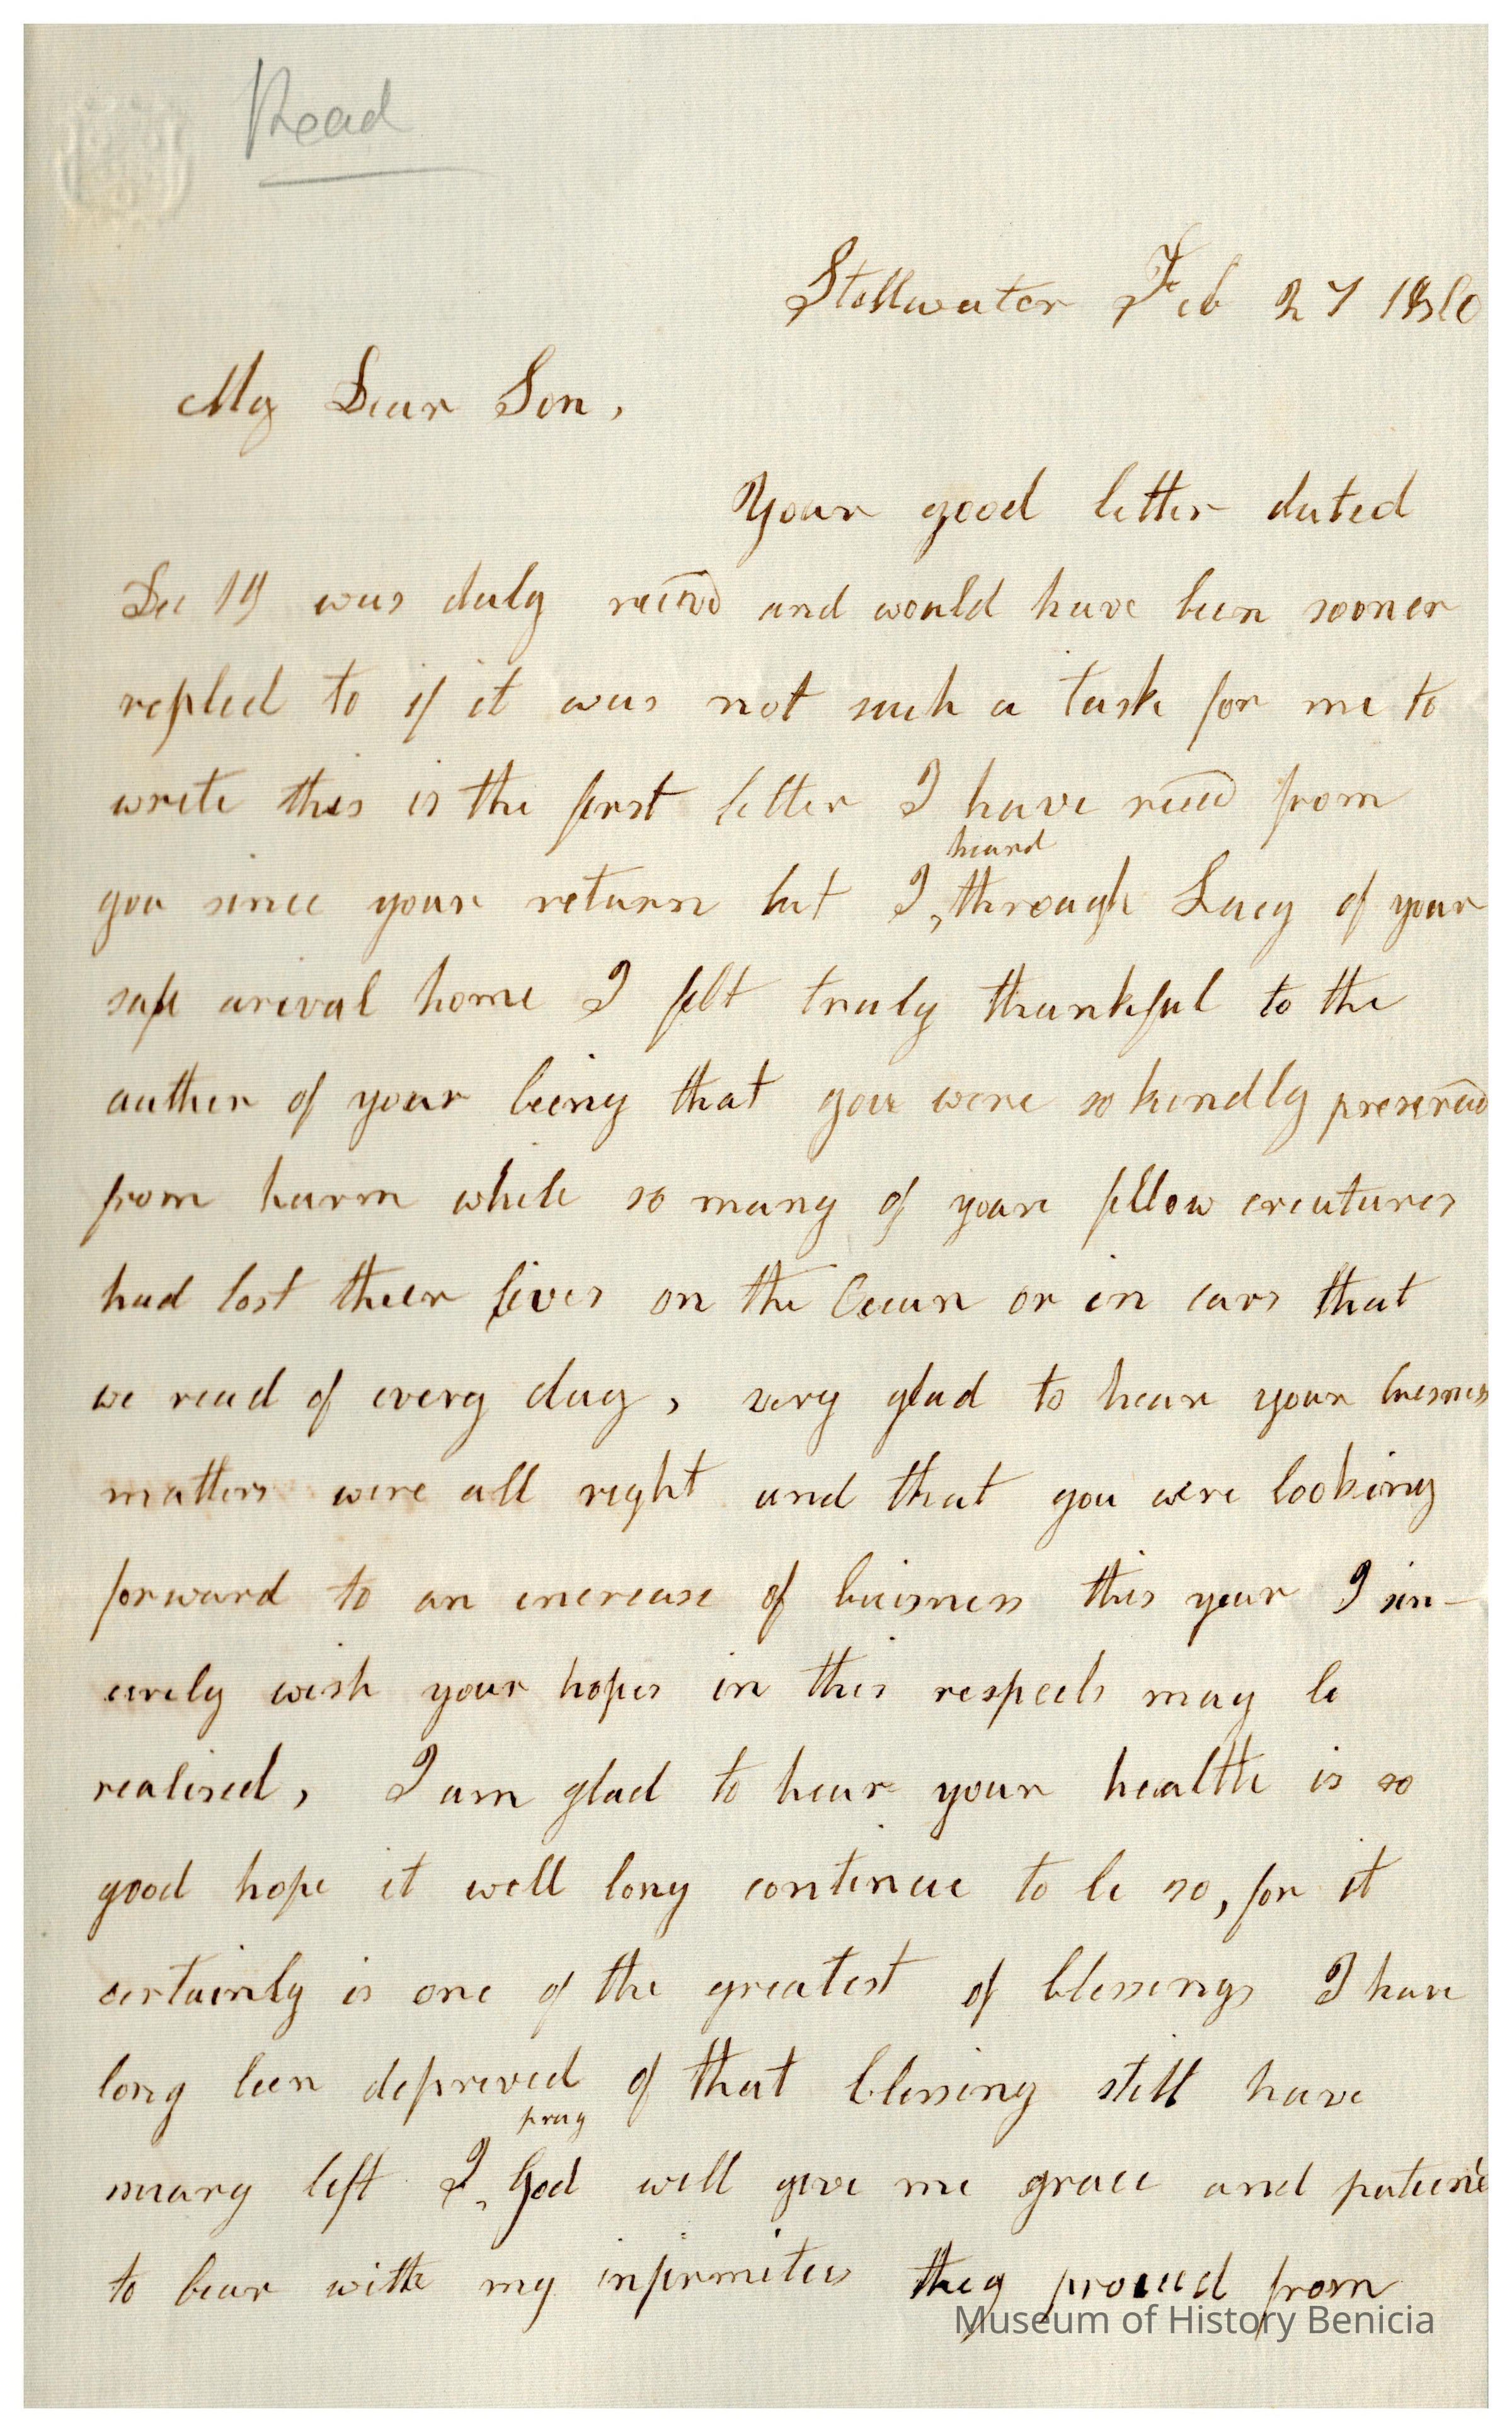 Read
Stillwater Feb 27 18
My Dear Son,
Your good letter dated
Dec 19 was duly recievd and would have been sooner
replied to if it was not such a task for me to
write this is the first letter I have recd from
heard
you since your return but I, through Lucy of your
safe arival home I felt truly thankful to the
auther of your being that you were so kindly preserved
from harm while so many of your fellow creatures
had lost their lives on the Ocean or in cars that
we read of every day, very glad to hear your buisness
matters were all right and that you were looking
forward to an increase of buisness this year I sin-
cerely wish your hopes in this respects may be
realised, I am glad to hear your health is so
good hope it will long continue to be so, for it
certainly is one of the greatest of blessings I have
long been deprived of that blessing still have
pray
many left I, God will give me grace and patience
to bear with my infirmities they proceed from
Museum of History Benicia